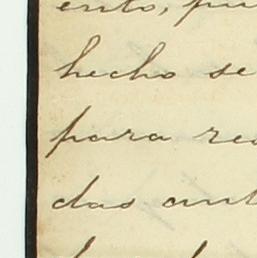 ento, pu
hecho se
para rec
das ant